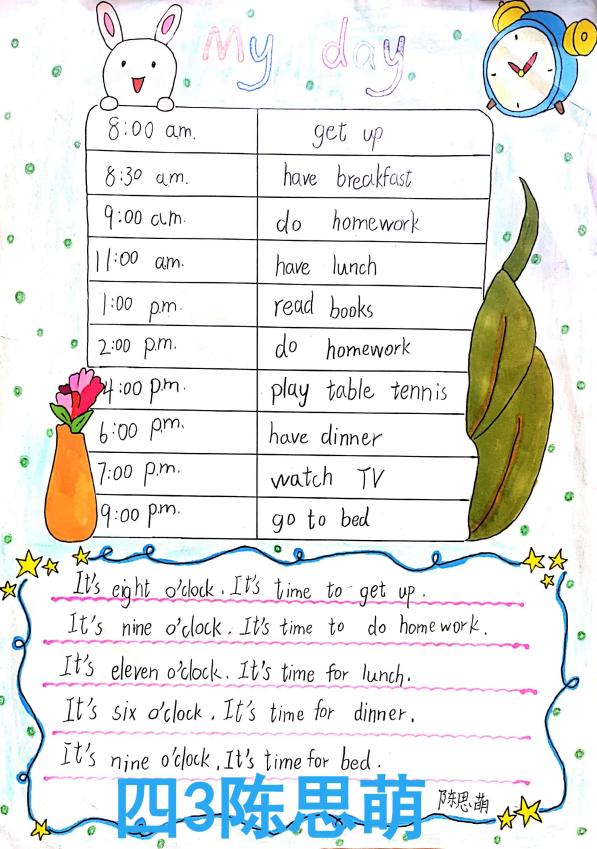 My day
8:00 am. get up
8:30 am. have breakfast
9:00 am. do homework
11:00 am. have lunch
1:00 p.m. read books
2:00 p.m. do homework
4:00 p.m. play table tennis
6:00 p.m. have dinner
7:00 p.m. watch TV
9:00 p.m. go to bed
It's eight o'clock. It's time to get up.
It's nine o'clock. It's time to do homework.
It's eleven o'clock. It's time for lunch.
It's six o'clock. It's time for dinner.
It's nine o'clock. It's time for bed.
陈思萌
四3陈思萌